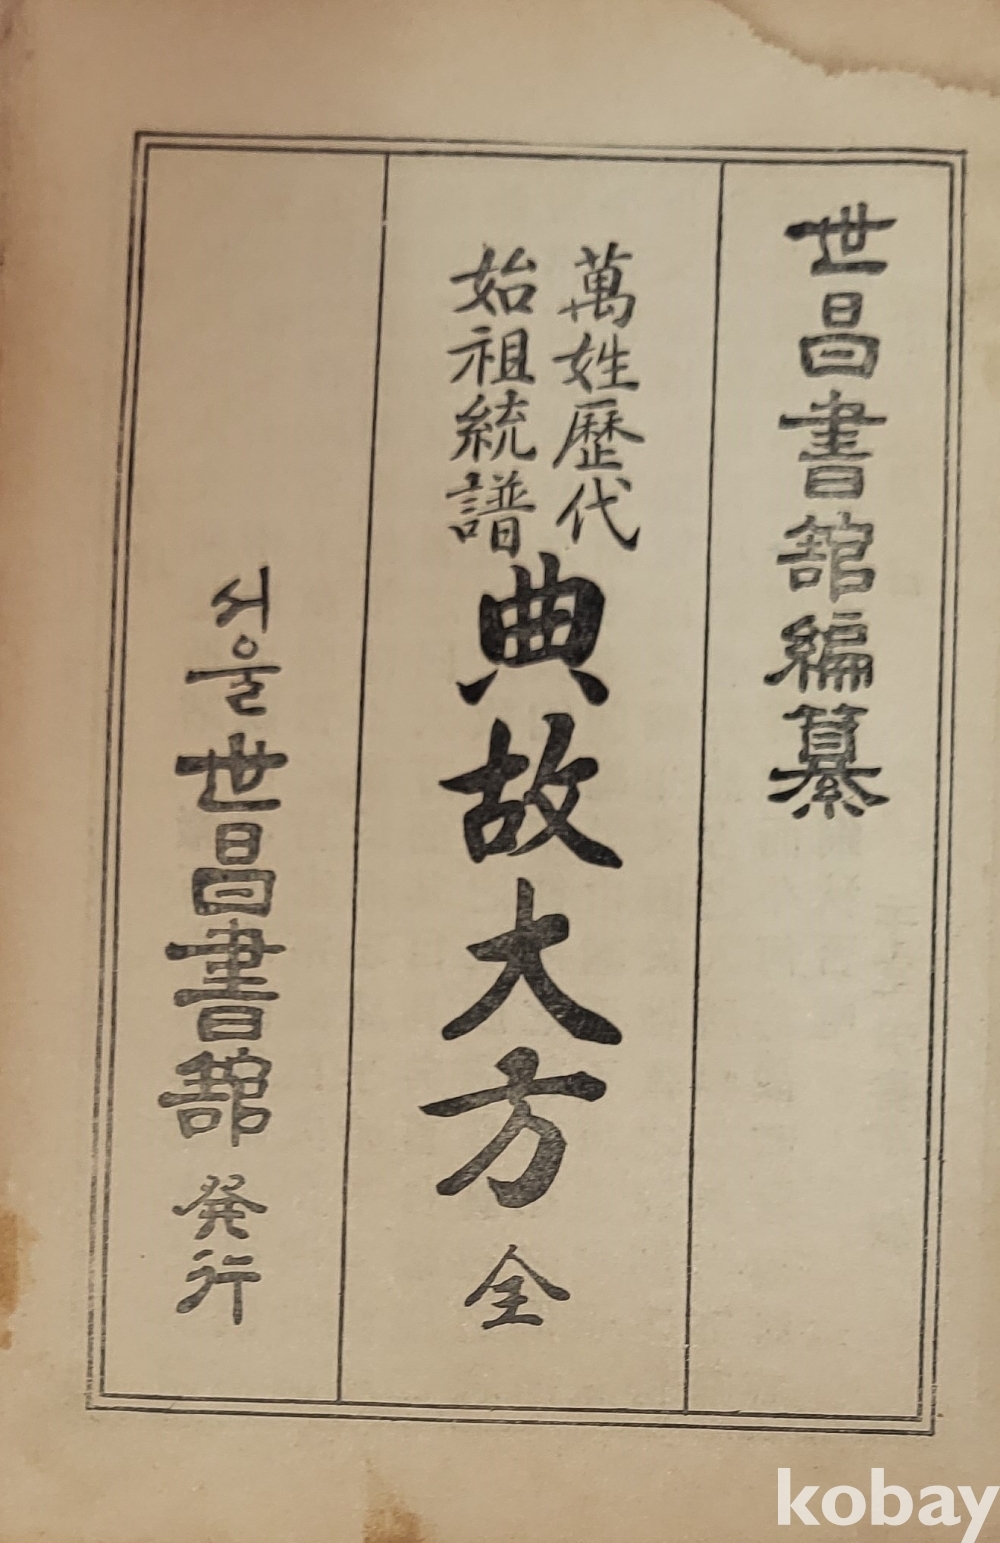 世昌書館編纂
萬姓歷代
始祖統譜
典故大方 全
서울 世昌書館 発行
kobay